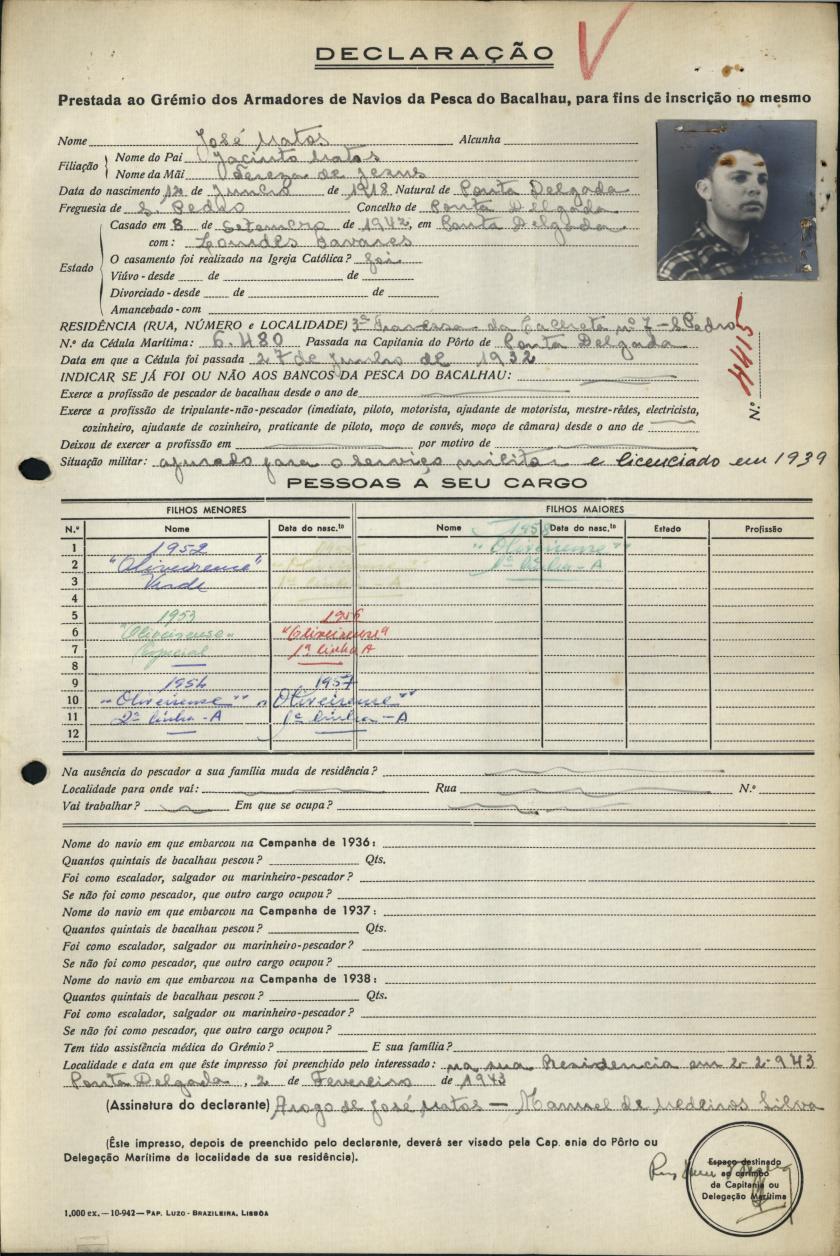 DECLARAÇÃO V
Prestada ao Grémio dos Armadores de Navios da Pesca do Bacalhau, para fins de inscrição no mesmo
Nome José Matos Alcunha
Filiação Nome do Pai Jacinto Matos
Nome da Mãi Tereza de Jesus
Data do nascimento 12 de Junho de 1918 Natural de Ponta Delgada
Freguesia de S. Pedro Concelho de Ponta Delgada
Estado Casado em 8 de Setembro de 1942, em Ponta Delgada
com: Lourdes Tavares
O casamento foi realizado na Igreja Católica? foi
Viúvo - desde de de
Divorciado - desde de de
Amancebado - com
RESIDÊNCIA (RUA, NÚMERO e LOCALIDADE) 3ª Travessa da Calheta nº 7 - S. Pedro
N.º da Cédula Marítima: 6.480 Passada na Capitania do Pôrto de Ponta Delgada
Data em que a Cédula foi passada 27 de Junho de 1932
N.º
INDICAR SE JÁ FOI OU NÃO AOS BANCOS DA PESCA DO BACALHAU:
Exerce a profissão de pescador de bacalhau desde o ano de
Exerce a profissão de tripulante-não-pescador (imediato, piloto, motorista, ajudante de motorista, mestre-rêdes, electricista,
cozinheiro, ajudante de cozinheiro, praticante de piloto, moço de convés, moço de câmara) desde o ano de
Deixou de exercer a profissão em por motivo de
Situação militar: apurado para o serviço militar e licenciado em 1939
PESSOAS A SEU CARGO
FILHOS MENORES FILHOS MAIORES
N.º Nome Data do nasc.to Nome Data do nasc.to Estado Profissão
1958
1 1952 "Oliveirense"
2 "Oliveirense" "Oliveirense" 1ª linha - A
3 Verde 1ª linha - A
4
5 1953 1956
6 "Oliveirense" "Oliveirense"
7 Especial 1ª linha A
8
9 1954 1957
10 "Oliveirense" "Oliveirense"
11 2ª linha - A 1ª linha - A
12
Na ausência do pescador a sua família muda de residência?
Localidade para onde vai: Rua N.º
Vai trabalhar? Em que se ocupa?
Nome do navio em que embarcou na Campanha de 1936:
Quantos quintais de bacalhau pescou? Qts.
Foi como escalador, salgador ou marinheiro-pescador?
Se não foi como pescador, que outro cargo ocupou?
Nome do navio em que embarcou na Campanha de 1937:
Quantos quintais de bacalhau pescou? Qts.
Foi como escalador, salgador ou marinheiro-pescador?
Se não foi como pescador, que outro cargo ocupou?
Nome do navio em que embarcou na Campanha de 1938:
Quantos quintais de bacalhau pescou? Qts.
Foi como escalador, salgador ou marinheiro-pescador?
Se não foi como pescador, que outro cargo ocupou?
Tem tido assistência médica do Grémio? E sua família?
Localidade e data em que êste impresso foi preenchido pelo interessado: na sua Residencia em 2-2-943
Ponta Delgada, 2 de Fevereiro de 1943
(Assinatura do declarante) Arogo de José Matos — Manuel de Medeiros Silva
(Êste impresso, depois de preenchido pelo declarante, deverá ser visado pela Cap. ania do Pôrto ou
Delegação Marítima da localidade da sua residência).
Espaço destinado
ao carimbo
da Capitania ou
Delegação Marítima
1,000 ex. — 10-942 — PAP. LUZO-BRAZILEIRA, LISBOA